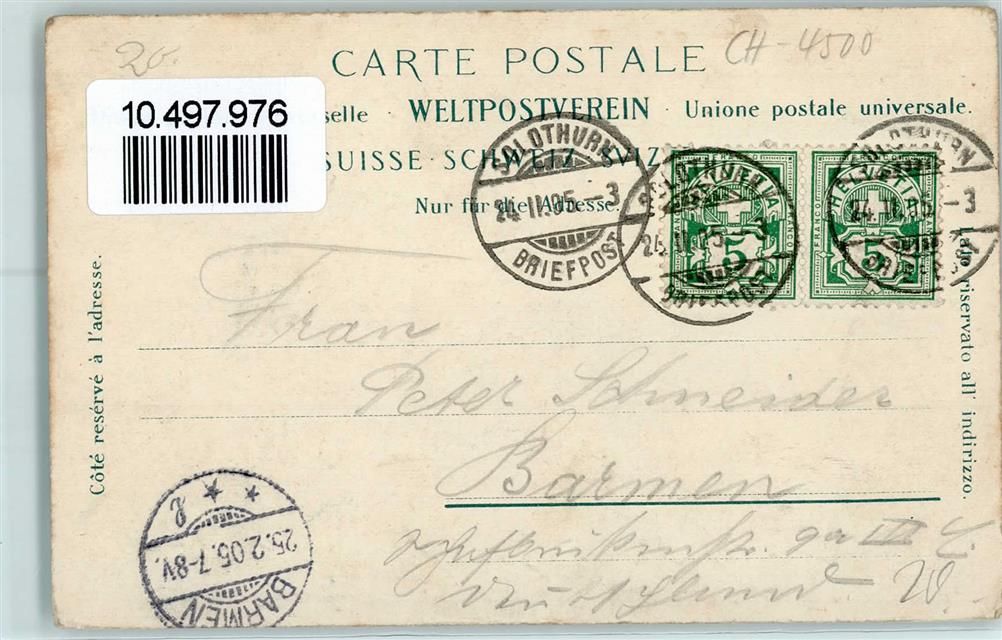 20.
CH-4500
CARTE POSTALE
10.497.976
selle · WELTPOSTVEREIN · Unione postale universale.
SUISSE · SCHWEIZ · SVIZ
Nur für die Adresse.
SOLOTHURN
24.II.05.-3
BRIEFPOST
SOLOTHURN
24.II.05.-3
BRIEFPOST
SOLOTHURN
24.II.05.-3
BRIEFPOST
HELVETIA
FRANCO
5
HELVETIA
FRANCO
5
Côté réservé à l'adresse.
Lato riservato all' indirizzo.
Frau
Peter Schneider
Barmen
III
Deutschland W.
BARMEN
25.2.05.7-8V.